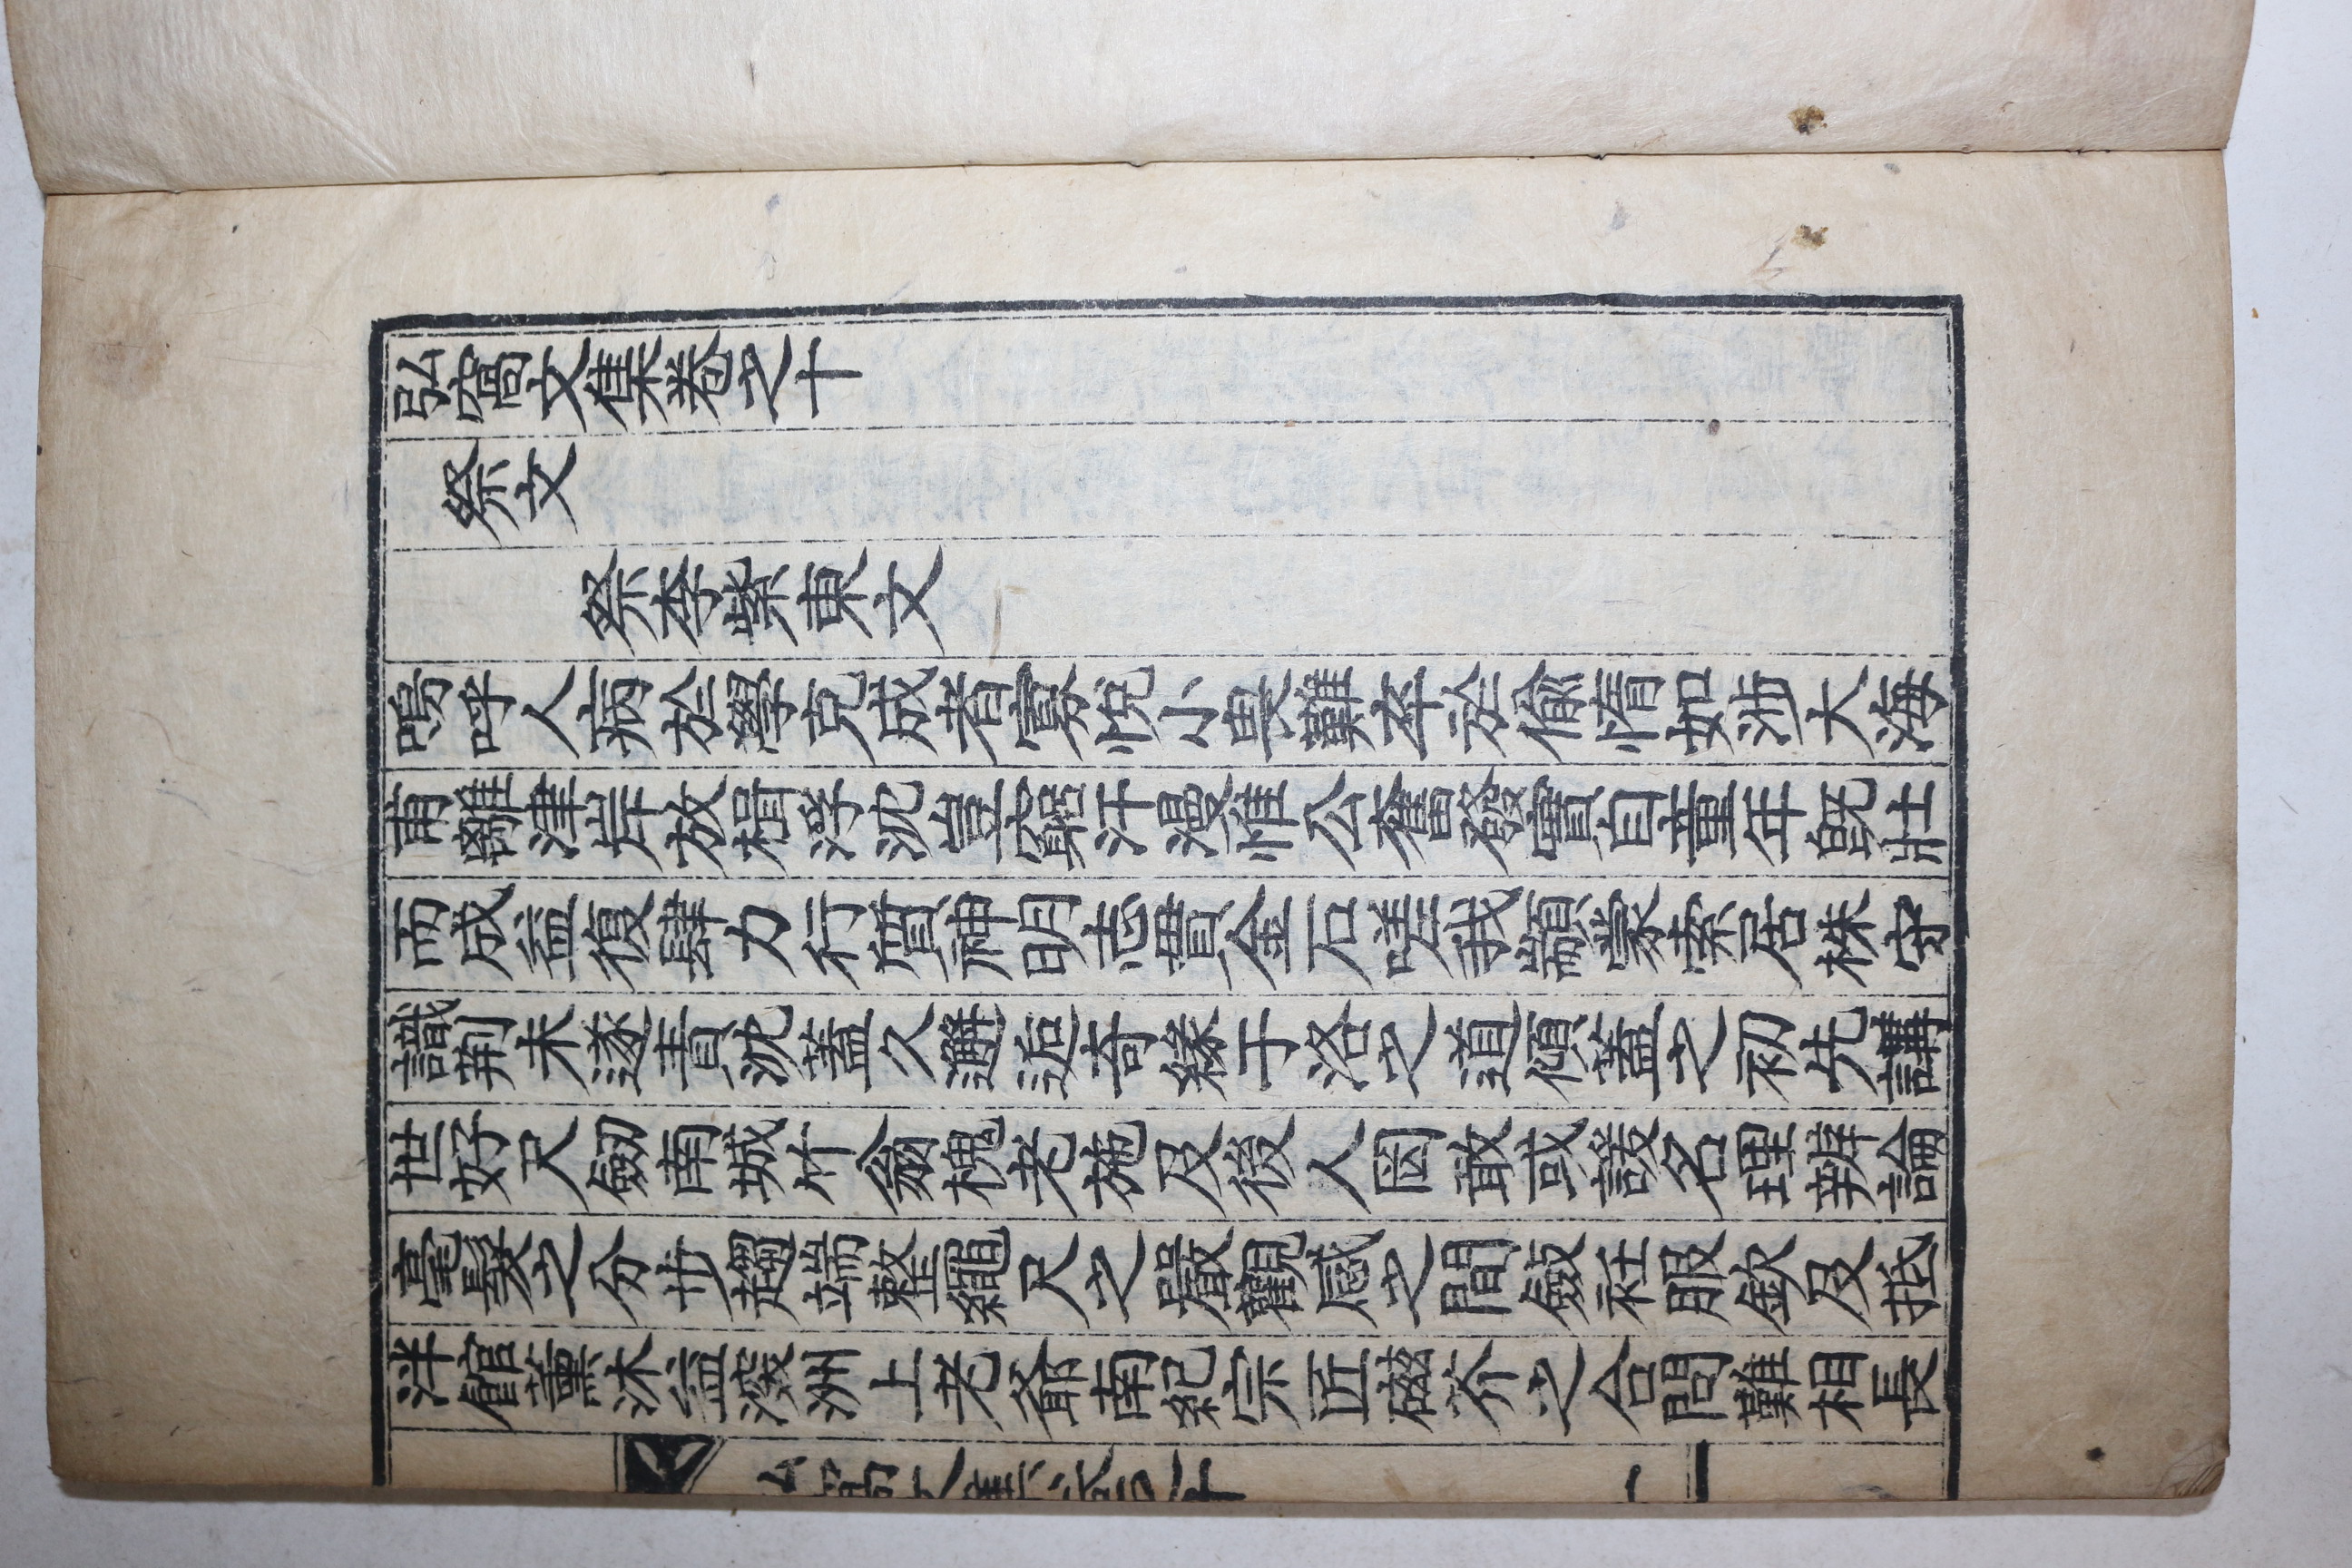 弘窩文集卷之十
祭文
祭李紫東文
嗚呼人病於學克成者寡悅小畏難卒於偸惰如涉大海
甫離津岸放楫浮沈豈窮汗漫惟公奮發實自童年旣壯
而成益復肆力行質神明志貫金石嗟我顓蒙索居株守
識荆未遂責沈蓋久邂逅奇緣于洛之道傾蓋之初先講
世好尺劒南城竹翁槐老施及後人罔敢或諼名理辨論
毫髮之分步趨端整繩尺之嚴觀感之間斂衽服欽及抵
泮館薰沐益深洲上老爺南紀宗匠磁芥之合問難相長
弘窩文集卷十
一